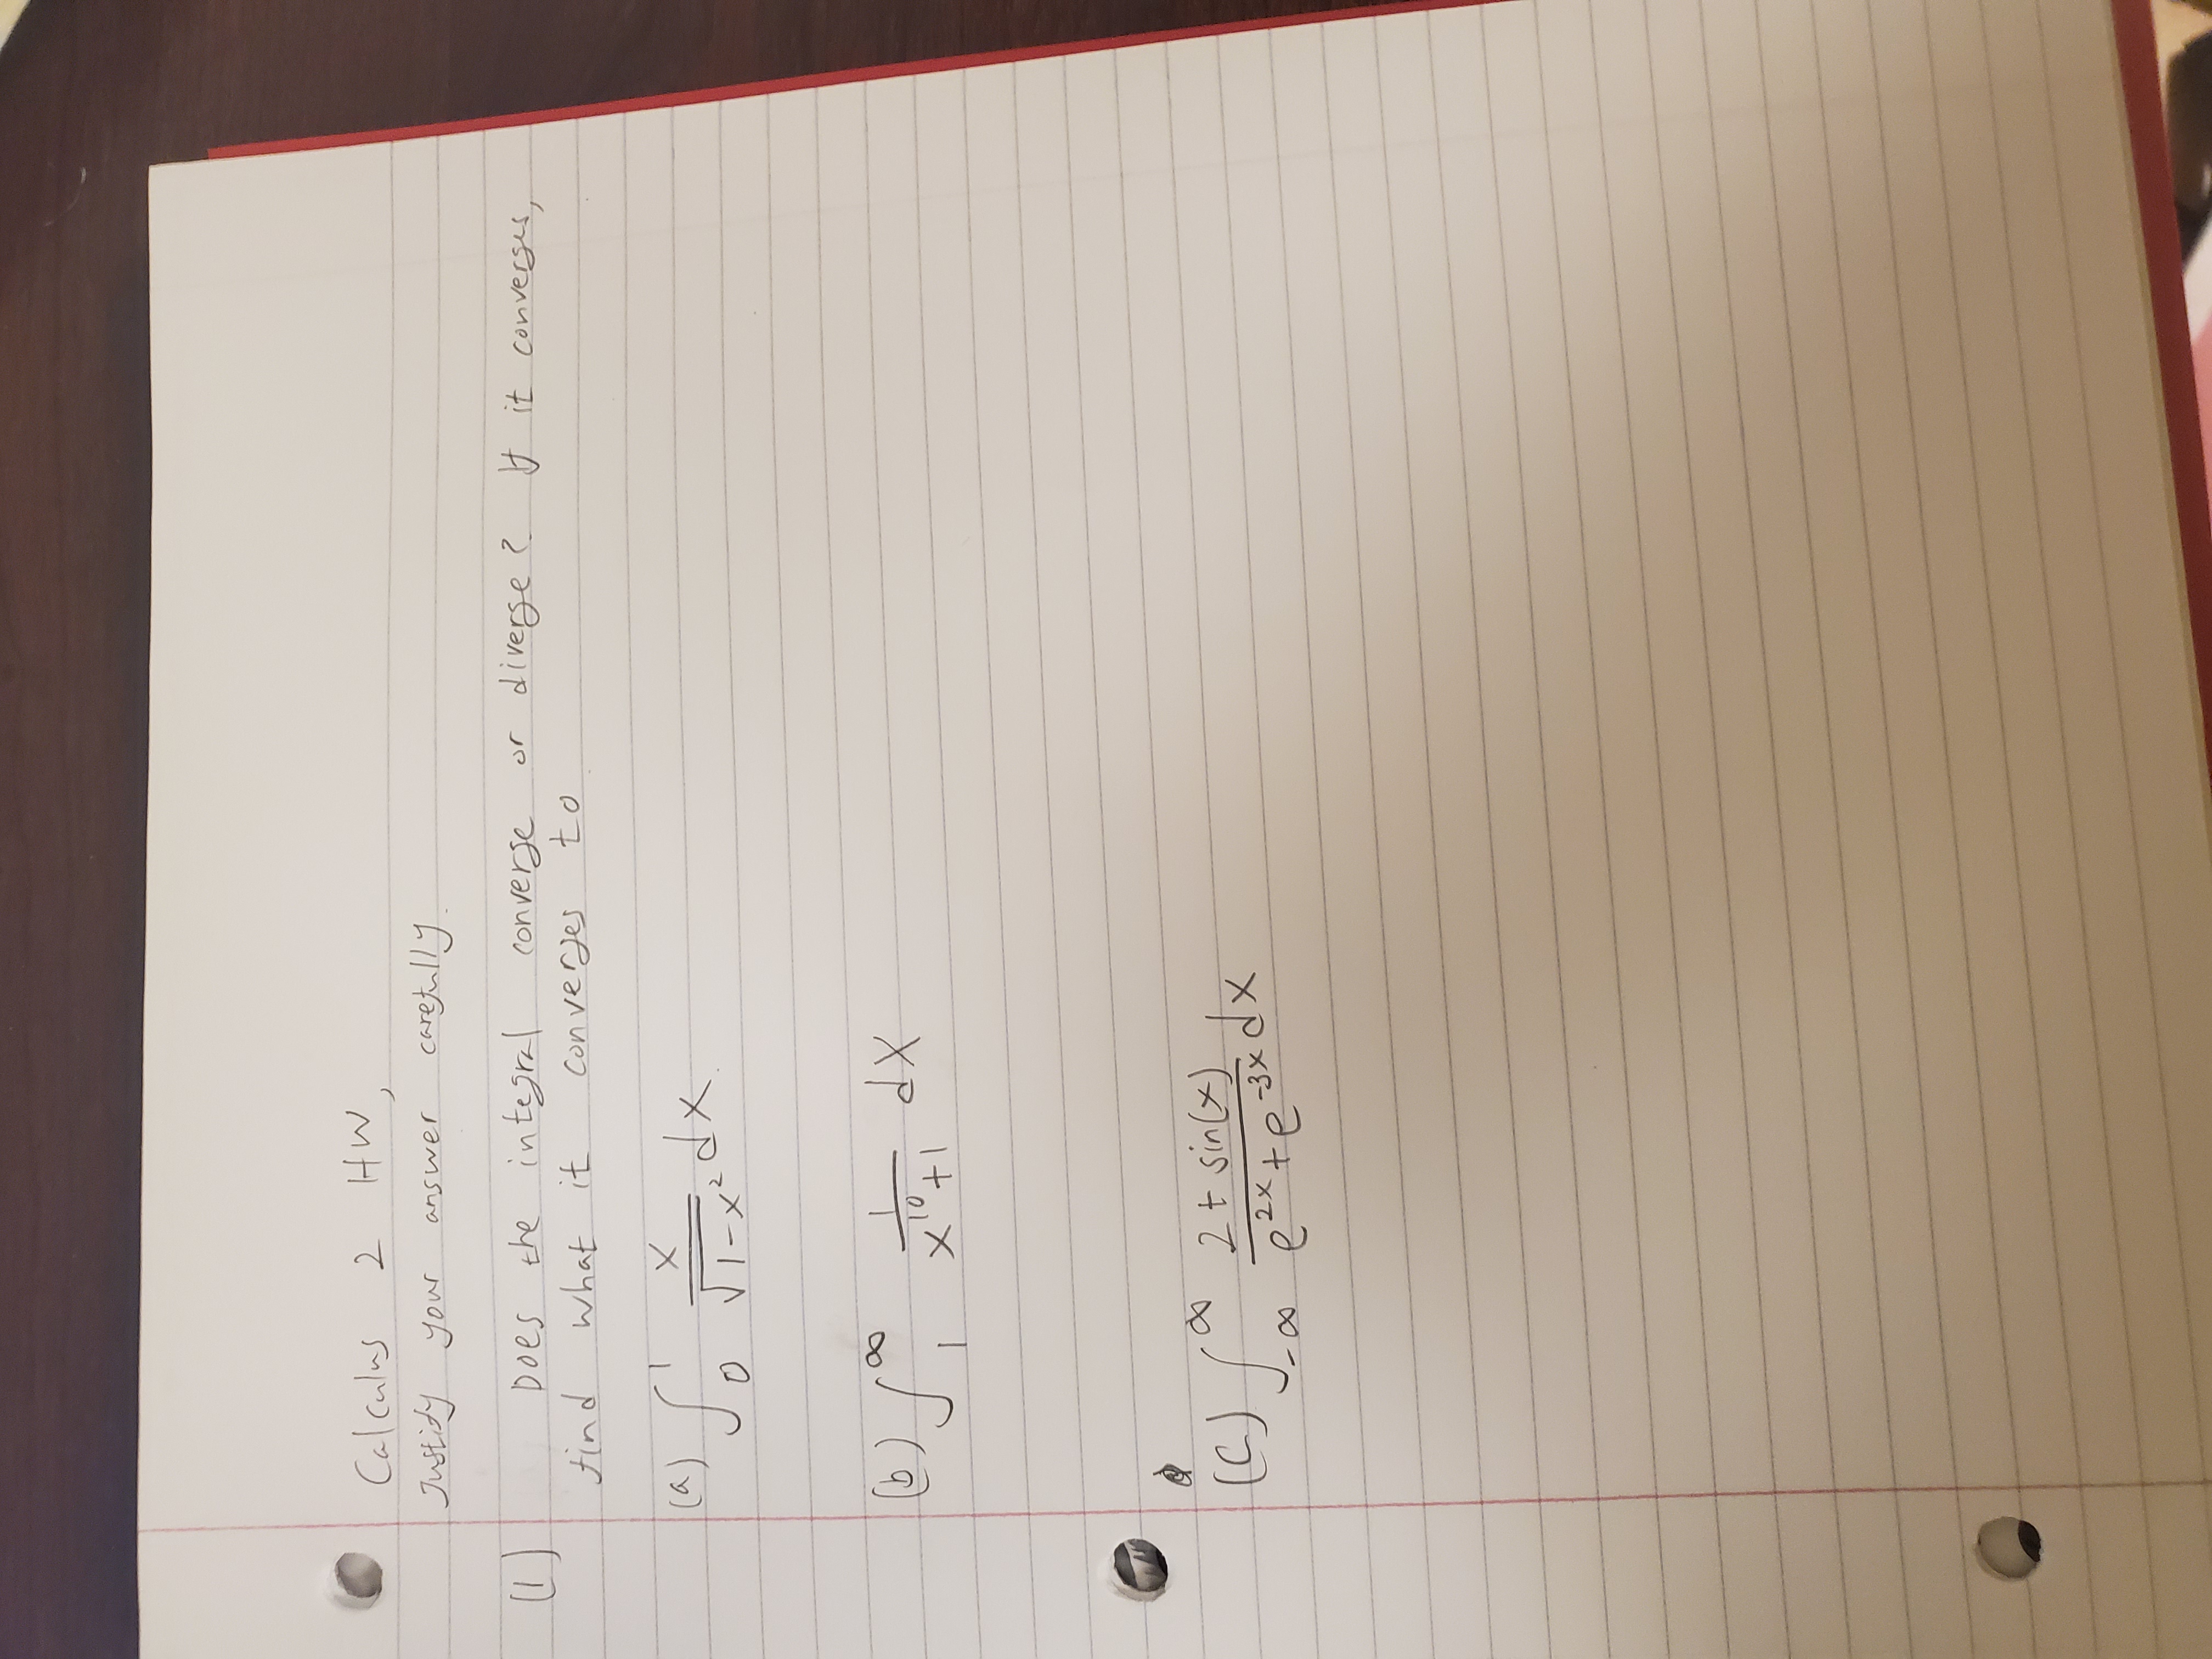 Calculus 2 HW,
Justify your answer carefully.
(1) Does the integral converse or diverse? If it converses,
find what it converses to
(a) ∫₀¹ x/√(1-x²) dx.
(b) ∫₁^∞ 1/(x¹⁰+1) dx
(c) ∫_{-∞}^∞ (2+sin(x))/(e^{2x}+e^{-3x}) dx